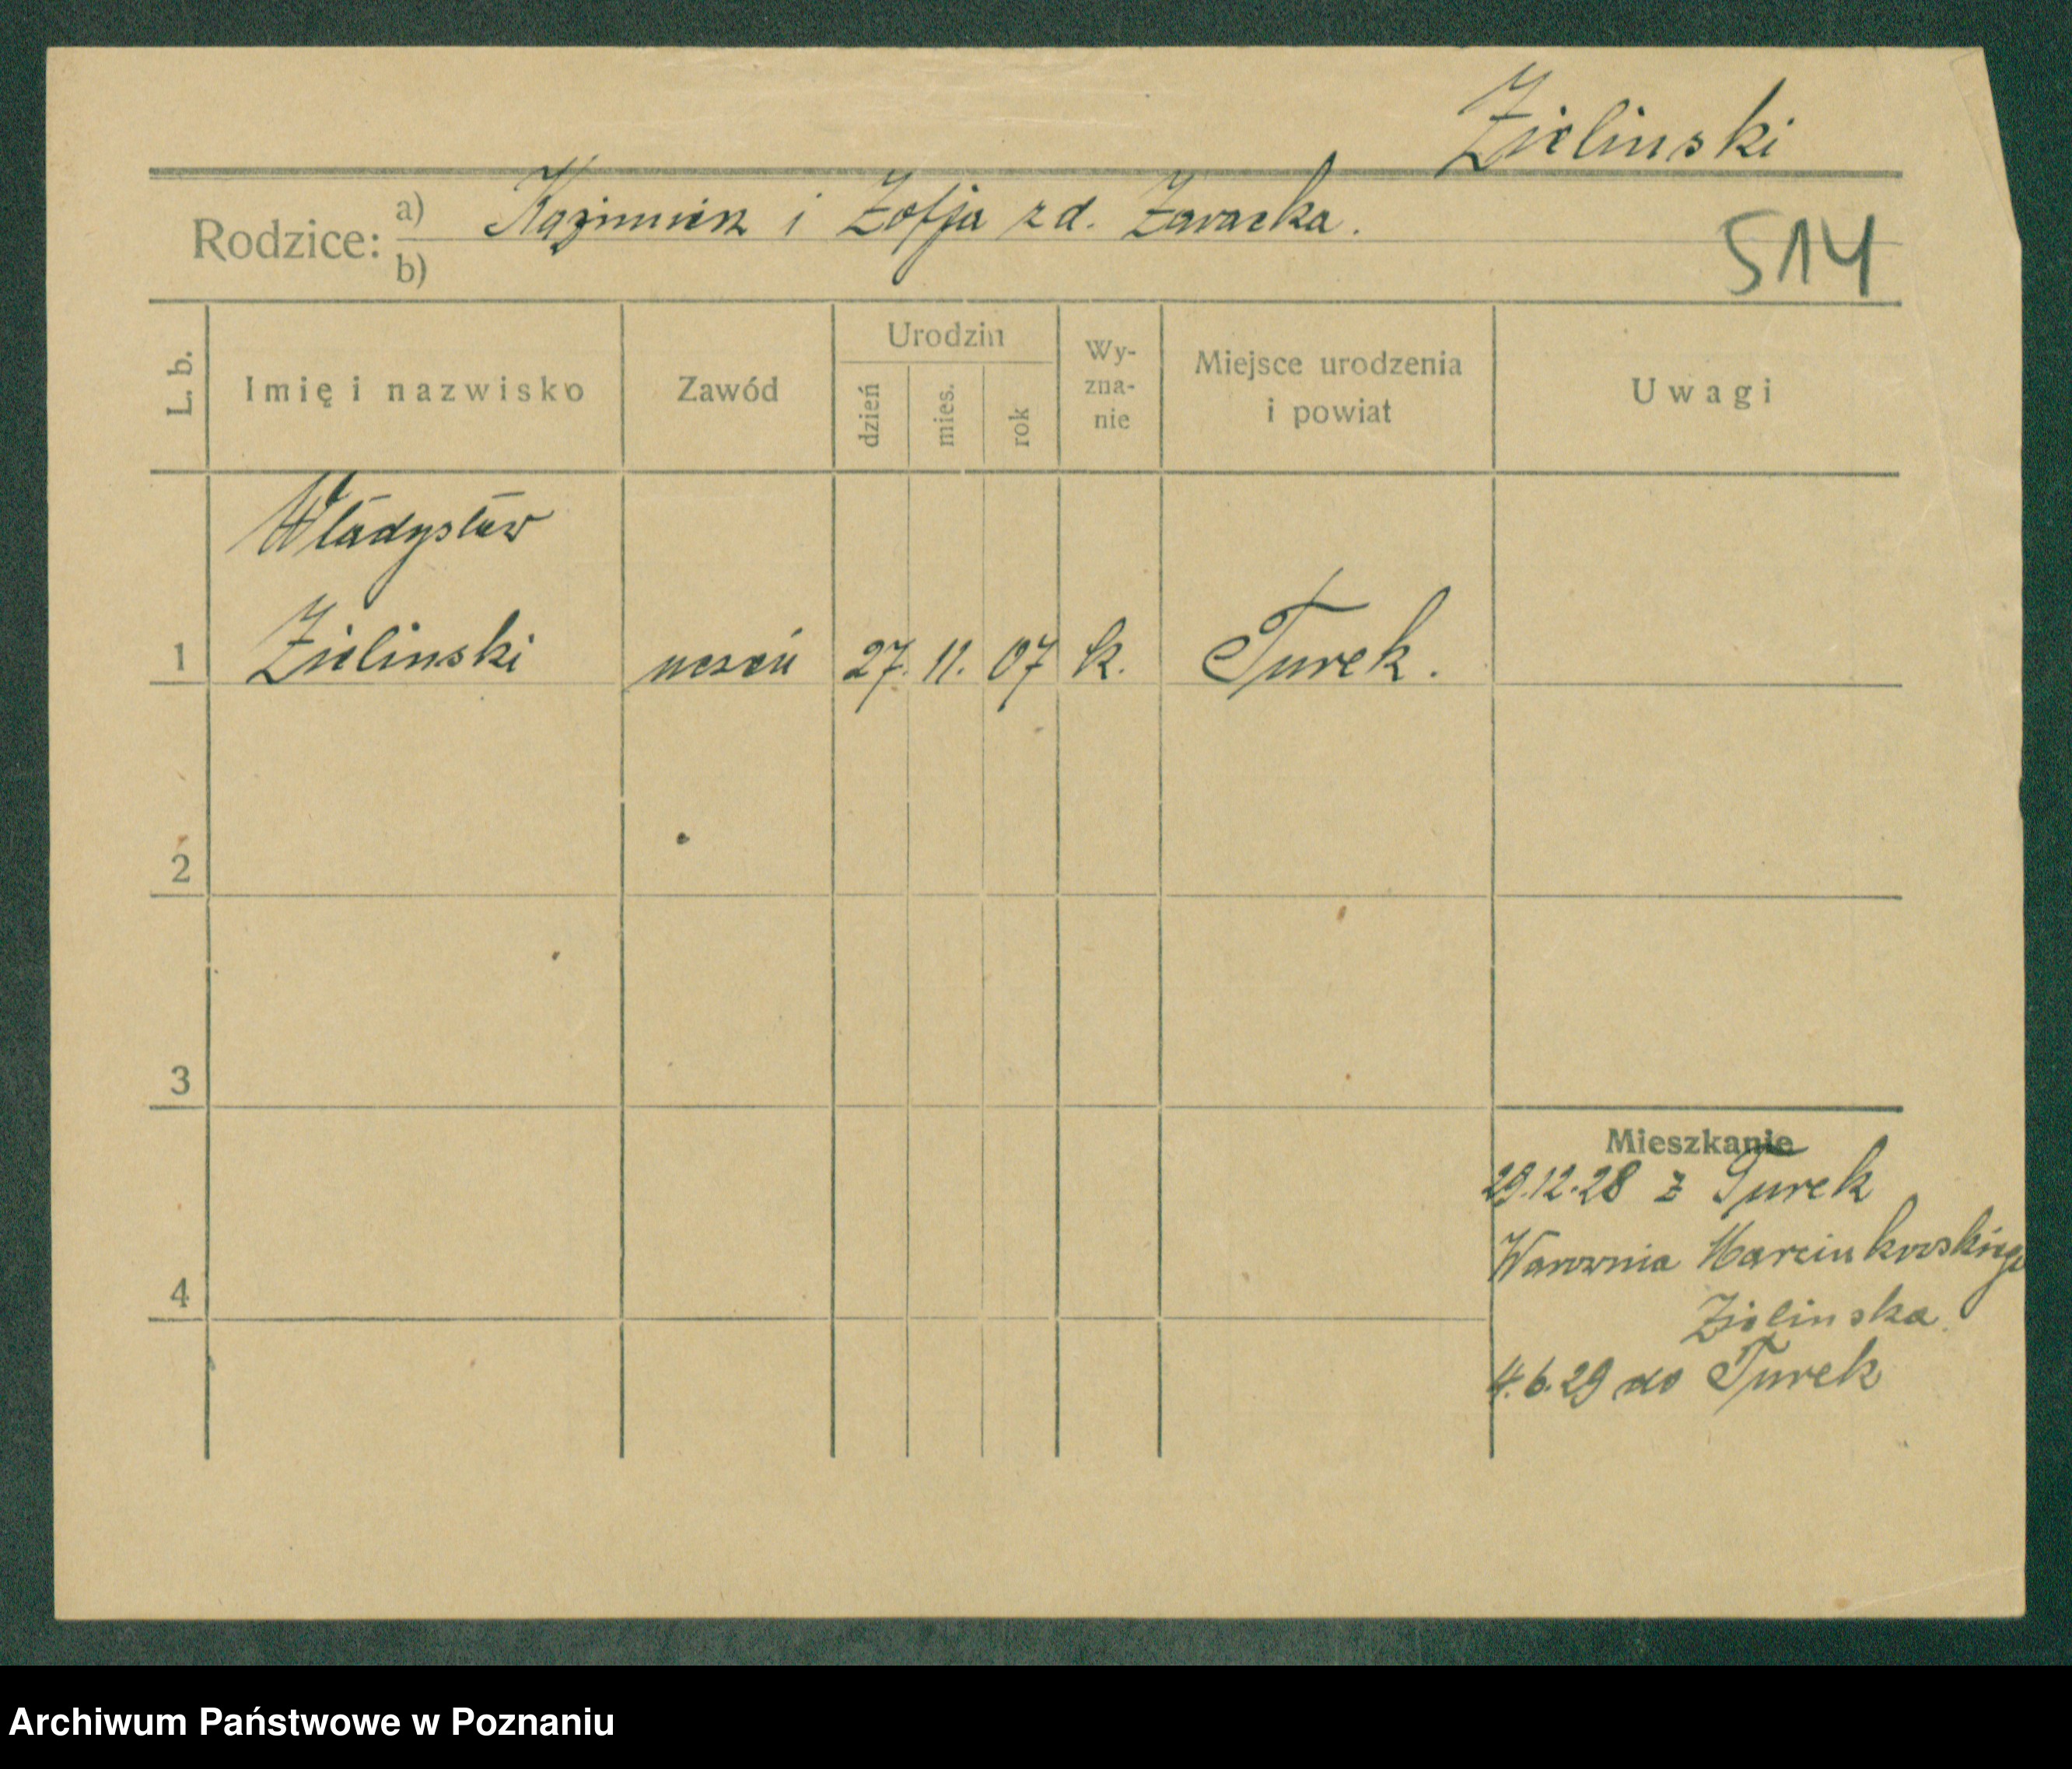 Zielinski
Rodzice: a) Kazimierz i Zofja zd. Zawacka.
b)
514
L. b.
Imię i nazwisko
Zawód
Urodzin
dzień
mies.
rok
Wy-
zna-
nie
Miejsce urodzenia
i powiat
Uwagi
Władysław
1 Zielinski uczeń 27. 11. 07 k. Turek.
2
3
Mieszkanie
29.12.28 z Turek
Warownia Marcinkowskiego
4
Zielinska.
4.6.29 do Turek
Archiwum Państwowe w Poznaniu